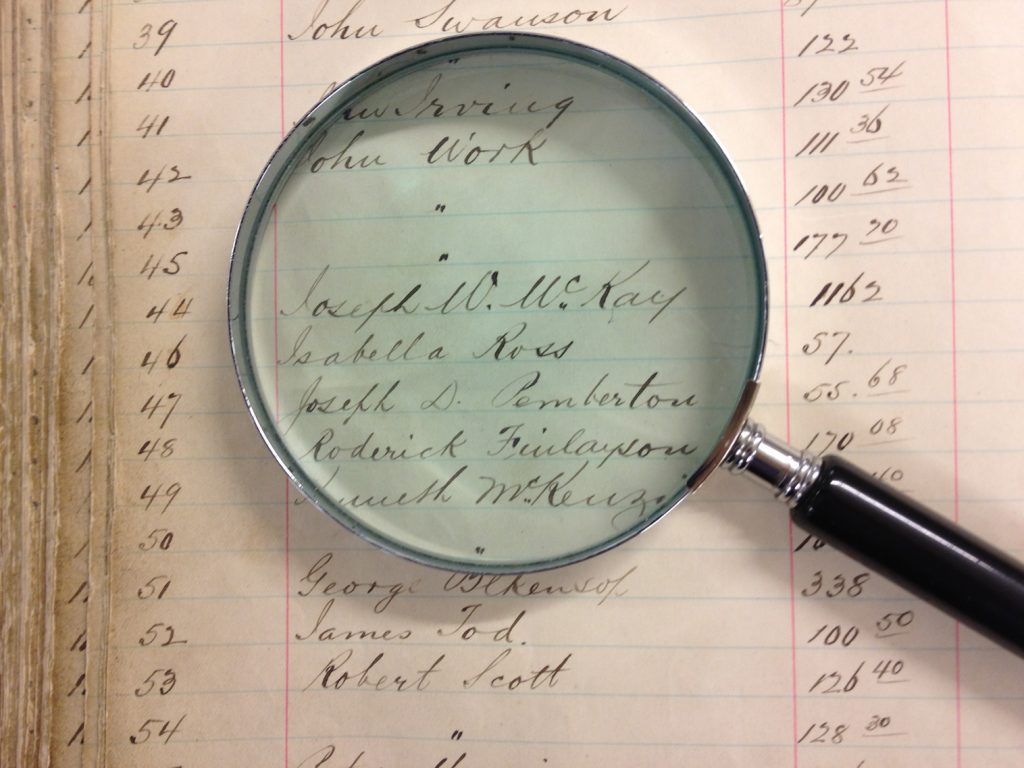 39 John Swanson 122
40 " 130 54
41 Irving 111 36
42 John Work 100 62
43 " 177 70
45 " 1162
44 Joseph W. McKay 57.
46 Isabella Ross 55. 68
47 Joseph D. Pemberton 170 08
48 Roderick Finlayson
49 Kenneth McKenzi
50 "
51 George 338
52 James Tod. 100 50
53 Robert Scott 126 40
54 " 128 30